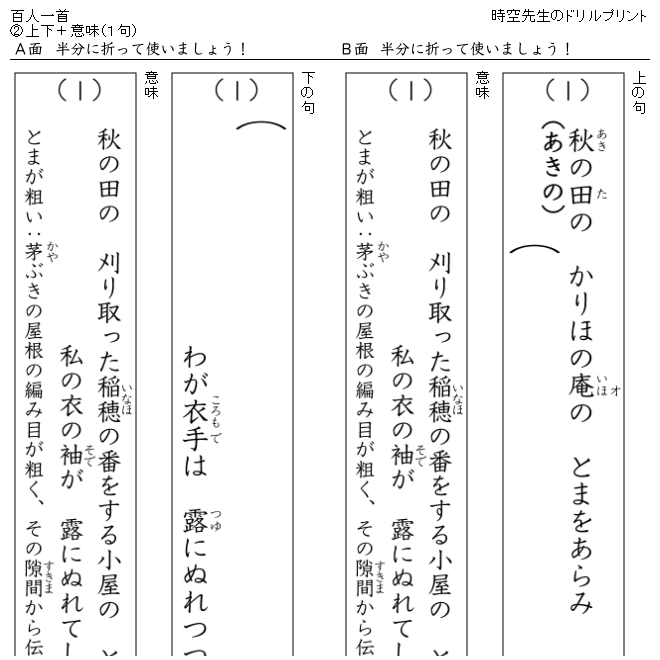 百人一首
時空先生のドリルプリント
②上下+意味(1句)
A面 半分に折って使いましょう!
B面 半分に折って使いましょう!
上の句
(1)
秋の田の かりほの庵の とまをあらみ
あき
た
いほ
オ
(あきの)(
意味
(1)
秋の田の 刈り取った稲穂の番をする小屋の と
いなほ
私の衣の袖が 露にぬれてし
そで
とまが粗い:茅ぶきの屋根の編み目が粗く、その隙間から伝
かや
すきま
下の句
(1)
(
わが衣手は 露にぬれつつ
ころもで
つゆ
意味
(1)
秋の田の 刈り取った稲穂の番をする小屋の と
いなほ
私の衣の袖が 露にぬれてし
そで
とまが粗い:茅ぶきの屋根の編み目が粗く、その隙間から伝
かや
すきま